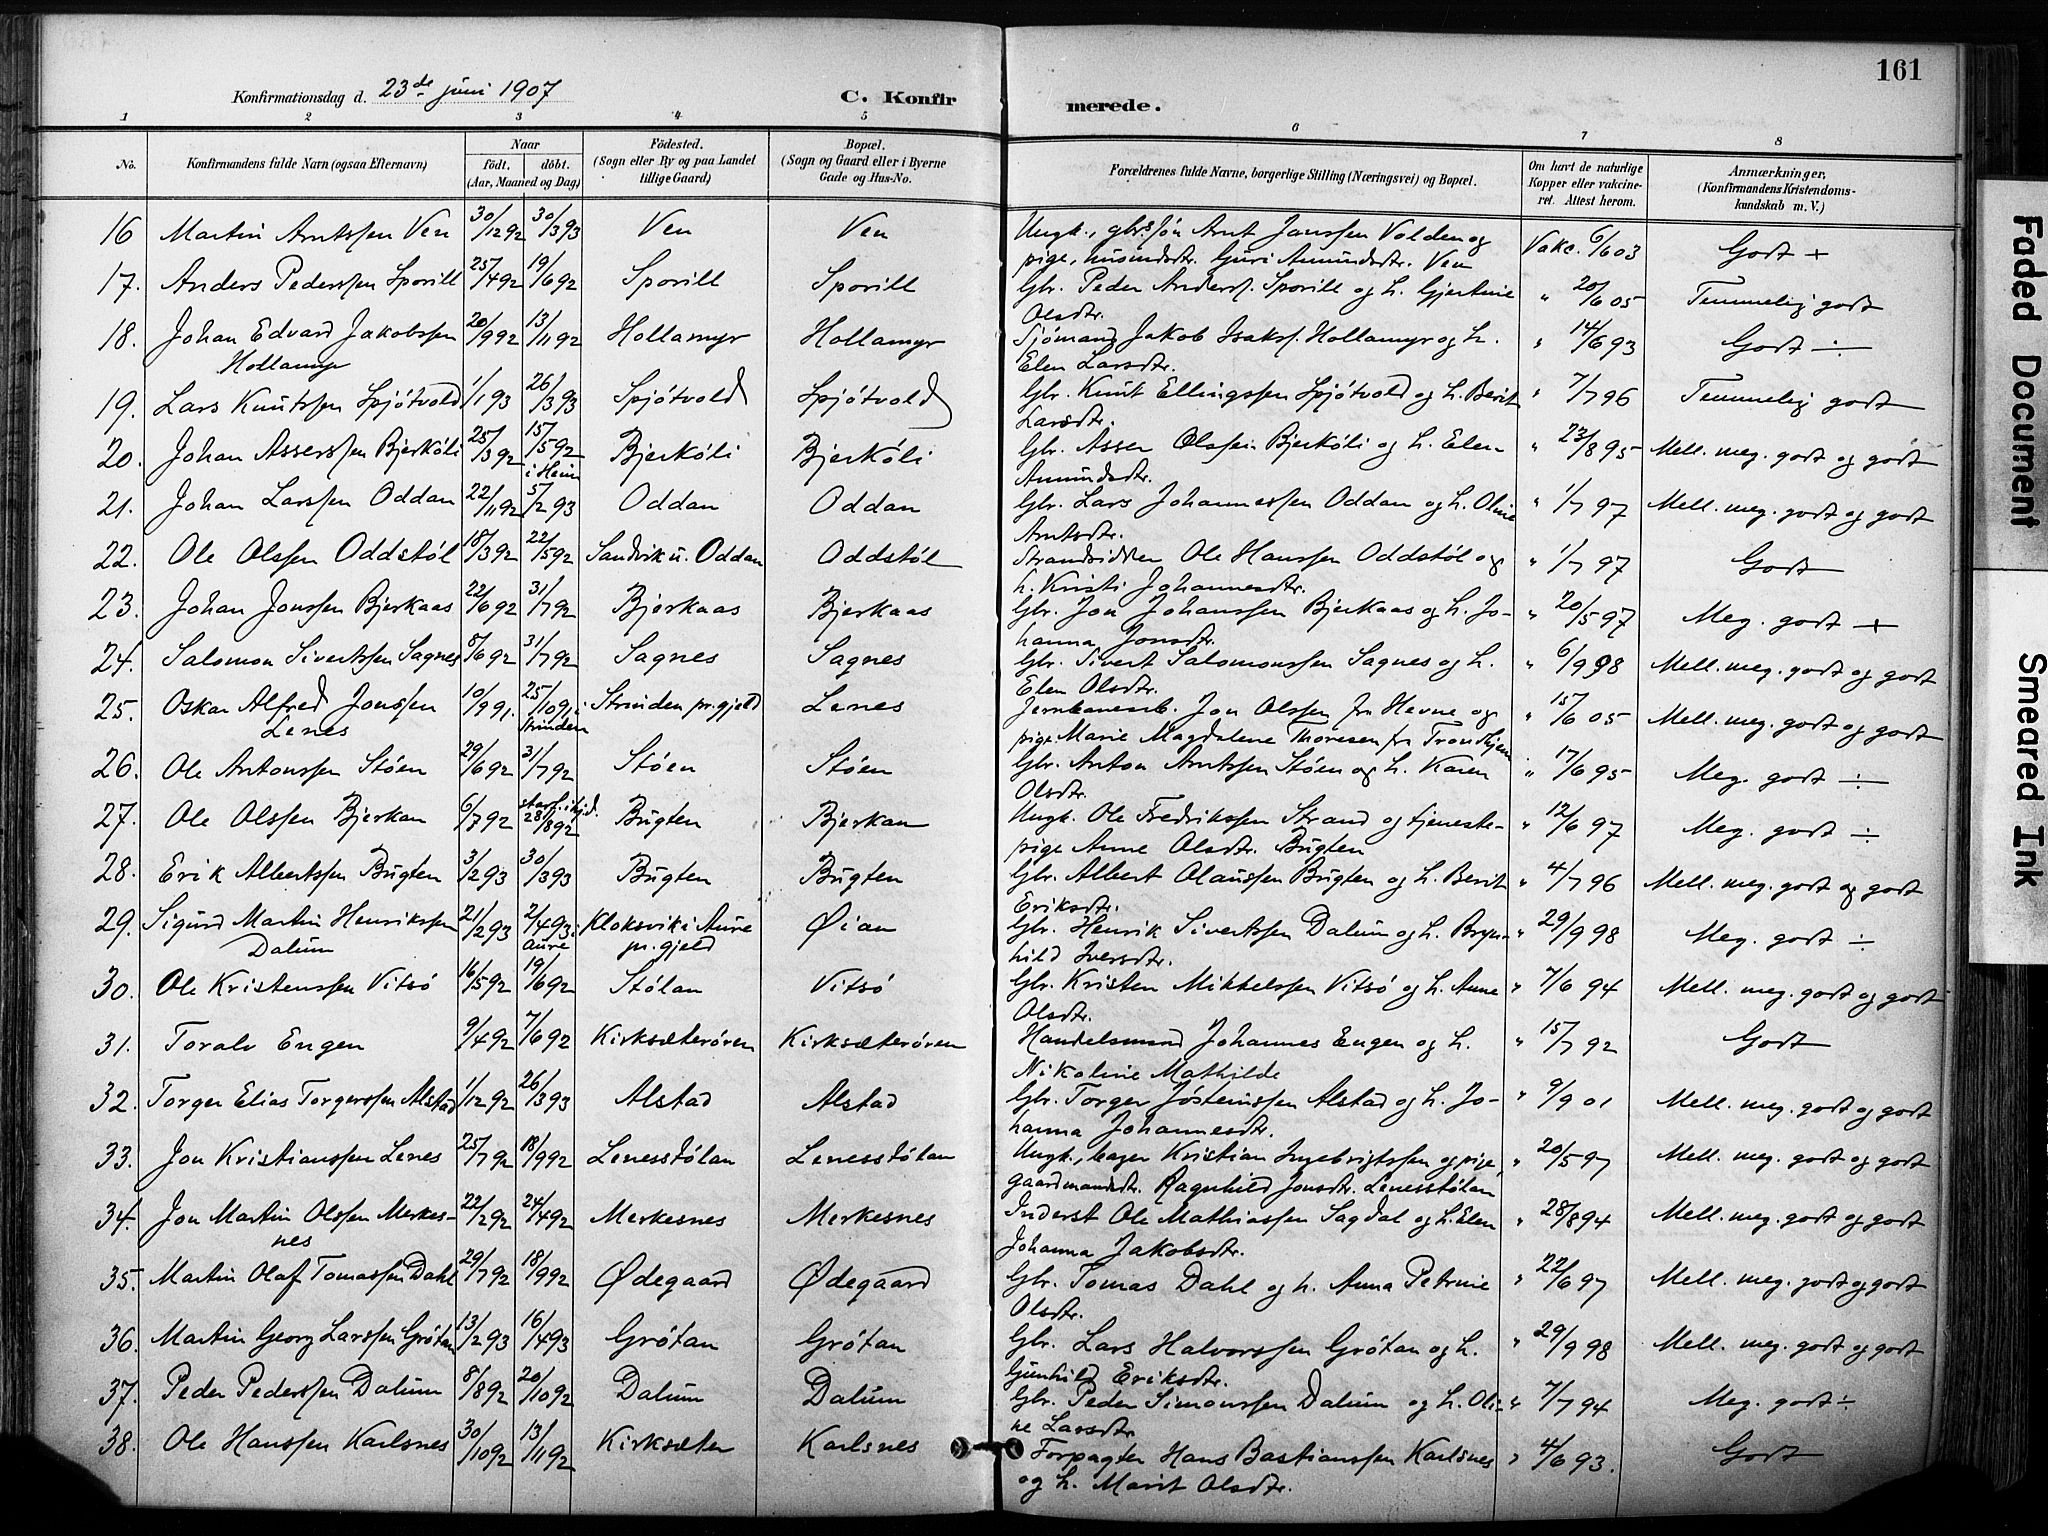 161
Konfirmationsdag d. 23de juni 1907
C. Konfirmerede.
1 2 3 4 5 6 7 8
No.
Konfirmandens fulde Navn (ogsaa Efternavn)
Naar
födt. döbt.
(Aar, Maaned og Dag)
Födested.
(Sogn eller By og paa Landet
tillige Gaard)
Bopæl.
(Sogn og Gaard eller i Byerne
Gade og Hus-No.
Forældrenes fulde Navne, borgerlige Stilling (Næringsvei) og Bopæl.
Om havt de naturlige
Kopper eller vakcine-
ret. Attest herom.
Anmærkninger,
(Konfirmandens Kristendoms-
kundskab m. V.)
16 Martin Arntssen Ven 30/12 92 30/3 93 Ven Ven Ungk., gbr.søn Arnt Janssen Volden og Vakc. 6/6 03 Godt +
pige, husmdstr. Guri Amundsdtr. Ven
17. Anders Pederssen Sporill 25/4 92 19/6 92 Sporill Sporill Gbr. Peder Anderss. Sporill og h. Gjertine " 20/6 05 Temmelig godt
Olsdtr.
18. Johan Edvard Jakobssen 20/9 92 13/11 92 Hollamyr Hollamyr Sjømand Jakob Isakss. Hollamyr og h. " 14/6 93 Godt ÷
Hollamyr Elen Larsdtr.
19. Lars Knutssen Spjötvold 1/1 93 26/3 93 Spjötvold Spjötvold Gbr. Knut Ellingssen Spjötvold og h. Berit " 7/7 96 Temmelig godt
Larsdtr.
20. Johan Asserssen Bjerköli 25/3 92 15/5 92 Bjerköli Bjerköli Gbr. Asser Olssen Bjerköli og h. Elen " 23/8 95 Mell. meg. godt og godt
i Heim Amundsdtr.
21. Johan Larssen Oddan 22/11 92 5/2 93 Oddan Oddan Gbr. Lars Johannessen Oddan og h. Oline " 1/7 97 Mell. meg. godt og godt
Arntsdtr.
22. Ole Olssen Oddstöl 18/3 92 22/5 92 Sandvik u. Oddan Oddstöl Strandsidder Ole Hanssen Oddstöl og " 1/7 97 Godt
h. Kristi Johannesdtr.
23. Johan Jonssen Bjerkaas 22/6 92 31/7 92 Bjerkaas Bjerkaas Gbr. Jon Johanssen Bjerkaas og h. Jo- " 20/5 97 Meg. godt +
hanna Jonsdtr.
24. Salomon Sivertssen Sagnes 8/6 92 31/7 92 Sagnes Sagnes Gbr. Sivert Salomonssen Sagnes og h. " 6/9 98 Mell. meg. godt og godt
Elen Olsdtr.
25. Oskar Alfred Jonssen 10/9 91. 25/10 91 i Strinden pr.gjeld Lenes Jernbanearb. Jon Olssen fra Hevne og " 15/6 05 Mell. meg. godt og godt
Lenes Strinden pige Marie Magdalene Thoresen fr Trondhjem
26. Ole Antonssen Støen 29/6 92 31/7 92 Støen Støen Gbr. Anton Arntssen Støen og h. Karen " 17/6 95 Meg. godt ÷
Olsdtr.
27. Ole Olssen Bjerkan 6/7 92 28/8 92 Bugten Bjerkan Ungk. Ole Fredrikssen Strand og tjeneste- " 12/6 97 Meg. godt ÷
pige Anne Olsdtr. Bugten
28. Erik Albertssen Bugten 3/2 93 30/3 93 Bugten Bugten Gbr. Albert Olaussen Bugten og h. Berit " 4/7 96 Mell. meg. godt og godt
Eriksdtr.
29. Sigurd Martin Henrikssen 21/2 93 2/4 93 i Kloksvik i Aure Øian Gbr. Henrik Sivertssen Dalum og h. Bryn- " 29/9 98 Meg. godt ÷
Dalum Aure pr. gjeld hild Iversdtr.
30. Ole Kristenssen Vitsö 16/5 92 19/6 92 Stölan Vitsö Gbr. Kristen Mikkelssen Vitsö og h. Anne " 7/6 94 Mell. meg. godt og godt
Olsdtr.
31. Toralv Engen 9/4 92 7/6 92 Kirksæterøren Kirksæterøren Handelsmand Johannes Engen og h. " 15/7 92 Godt
Nikoline Mathilde
32. Torger Elias Torgerssen Alstad 1/12 92 26/3 93 Alstad Alstad Gbr. Torger Jösteinssen Alstad og h. Jo- " 9/9 01 Mell. meg. godt og godt
hanna Johannesdtr.
33. Jon Kristianssen Lenes 25/7 92 18/9 92 Lenesstölan Lenesstölan Ungk., bager Kristian Ingebrigtssen og pige, " 20/5 97 Mell. meg. godt og godt
gaardmandsdtr. Ragnhild Jonsdtr. Lenesstölan
34. Jon Martin Olssen Merkes- 22/2 92 24/4 92 Merkesnes Merkesnes Inderst Ole Mathiassen Sagdal og h. Elen " 28/8 94 Mell. meg. godt og godt
nes Johanna Jakobsdtr.
35. Martin Olaf Tomassen Dahl 29/7 92 18/9 92 Ødegaard Ødegaard Gbr. Tomas Dahl og h. Anna Petrine " 22/6 97 Mell. meg. godt og godt
Olsdtr.
36. Martin Georg Larssen Grötan 13/2 93 16/4 93 Grötan Grötan Gbr. Lars Halvorssen Grötan og h. " 29/9 98 Mell. meg. godt og godt
Gunhild Eriksdtr.
37. Peder Pederssen Dalum 8/8 92 20/10 92 Dalum Dalum Gbr. Peder Simonssen Dalum og h. Oli- " 7/7 94 Meg. godt ÷
ne Larsdtr.
38. Ole Hanssen Karlsnes 30/10 92 13/11 92 Kirksæter Karlsnes Forpagter Hans Bastianssen Karlsnes " 4/6 93. Godt
og h. Marit Olsdtr.
Faded Document
Smeared Ink